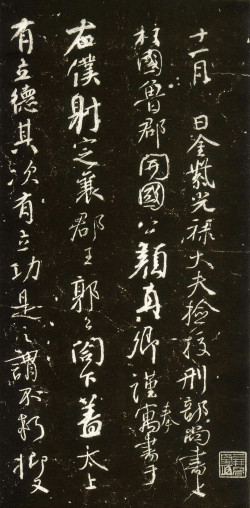 十一月 日金紫光禄大夫檢挍刑部尚書上
柱國魯郡開國公顏真卿謹奉寓書于
右僕射定襄郡王郭公閤下蓋太上
有立德其次有立功是之謂不朽抑又